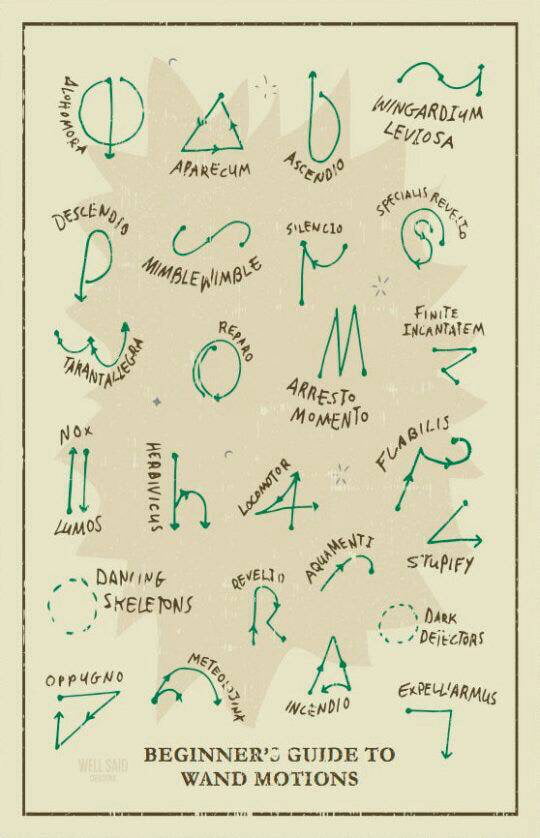 ALOHOMORA
APARECUM
ASCENDIO
WINGARDIUM
LEVIOSA
DESCENDIO
MIMBLEWIMBLE
SILENCIO
SPECIALIS REVELIO
TARANTALLEGRA
REPARO
ARRESTO
MOMENTO
FINITE
INCANTATEM
NOX
LUMOS
HERBIVICUS
LOCOMOTOR
FLABILIS
STUPIFY
DANCING
SKELETONS
REVELIO
AQUAMENTI
DARK
DETECTORS
OPPUGNO
METEOLOJINX
INCENDIO
EXPELL'ARMUS
WELL SAID
CREATIONS
BEGINNER'S GUIDE TO
WAND MOTIONS